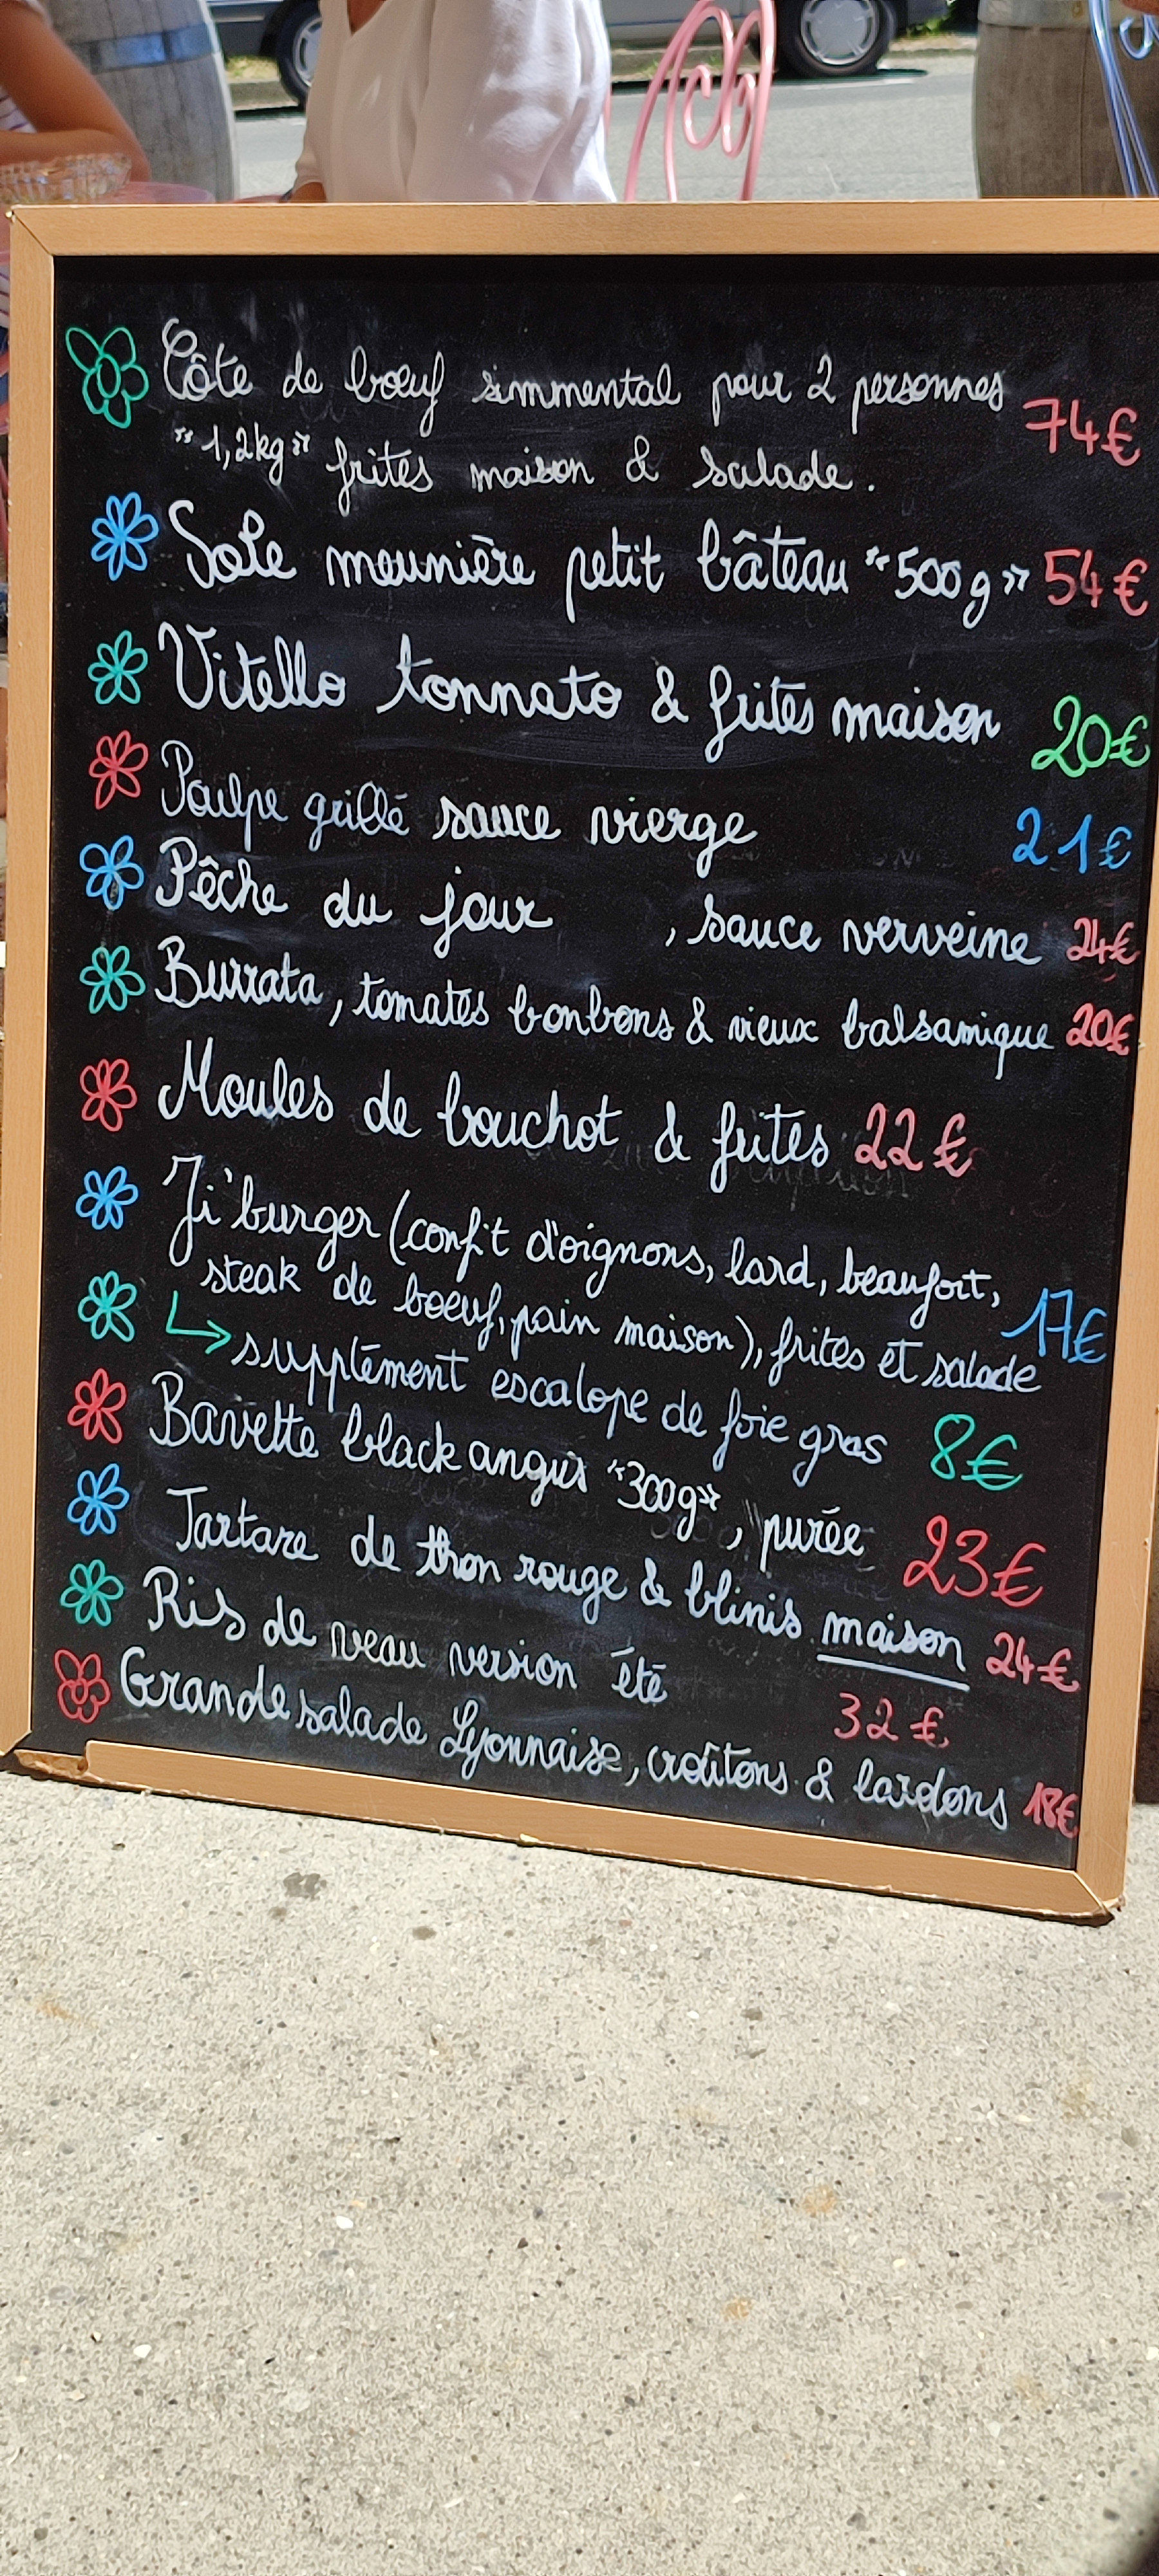 Côte de boeuf simmental pour 2 personnes 74€
"1,2kg" frites maison & salade.
Sole meunière petit bâteau "500g" 54€
Vitello tonnato & frites maison 20€
Poulpe grillé sauce vierge 21€
Pêche du jour , sauce verveine 24€
Burrata, tomates bonbons & vieux balsamique 20€
Moules de bouchot & frites 22€
Ji'burger (confit d'oignons, lard, beaufort,
steak de boeuf, pain maison), frites et salade 17€
supplément escalope de foie gras 8€
Bavette black angus "300g", purée 23€
Tartare de thon rouge & blinis maison 24€
Ris de veau version été 32€
Grande salade Lyonnaise, croûtons & lardons 18€